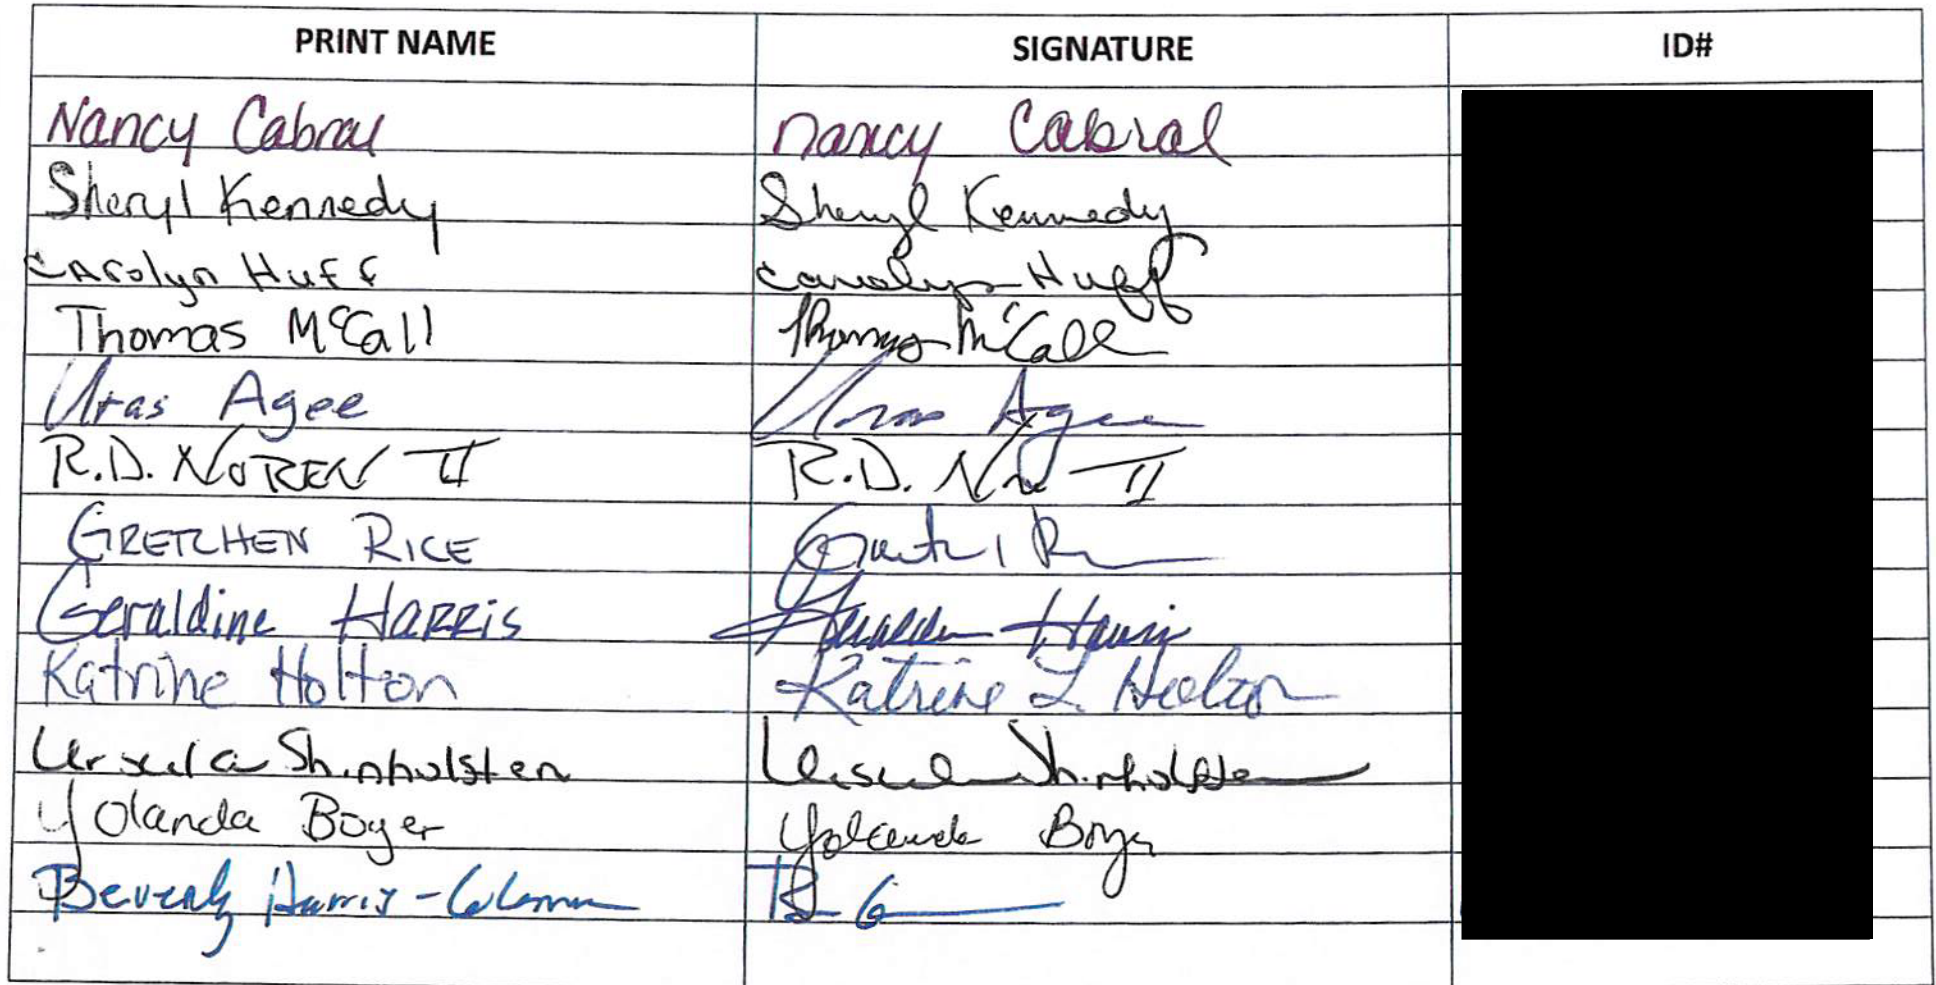 PRINT NAME SIGNATURE ID#
Nancy Cabral Nancy Cabral
Sheryl Kennedy Sheryl Kennedy
Carolyn Huff Carolyn Huff
Thomas McCall Thomas McCall
Uras Agee Uras Agee
R.D. NOREN II R.D. II
GRETCHEN RICE
Geraldine HARRIS Geraldine Harris
Katrine Holton Katrine L Holton
Ursula Shinholster Ursula Shinholster
Yolanda Boyer Yolanda Boyer
Beverly Harris-Coleman